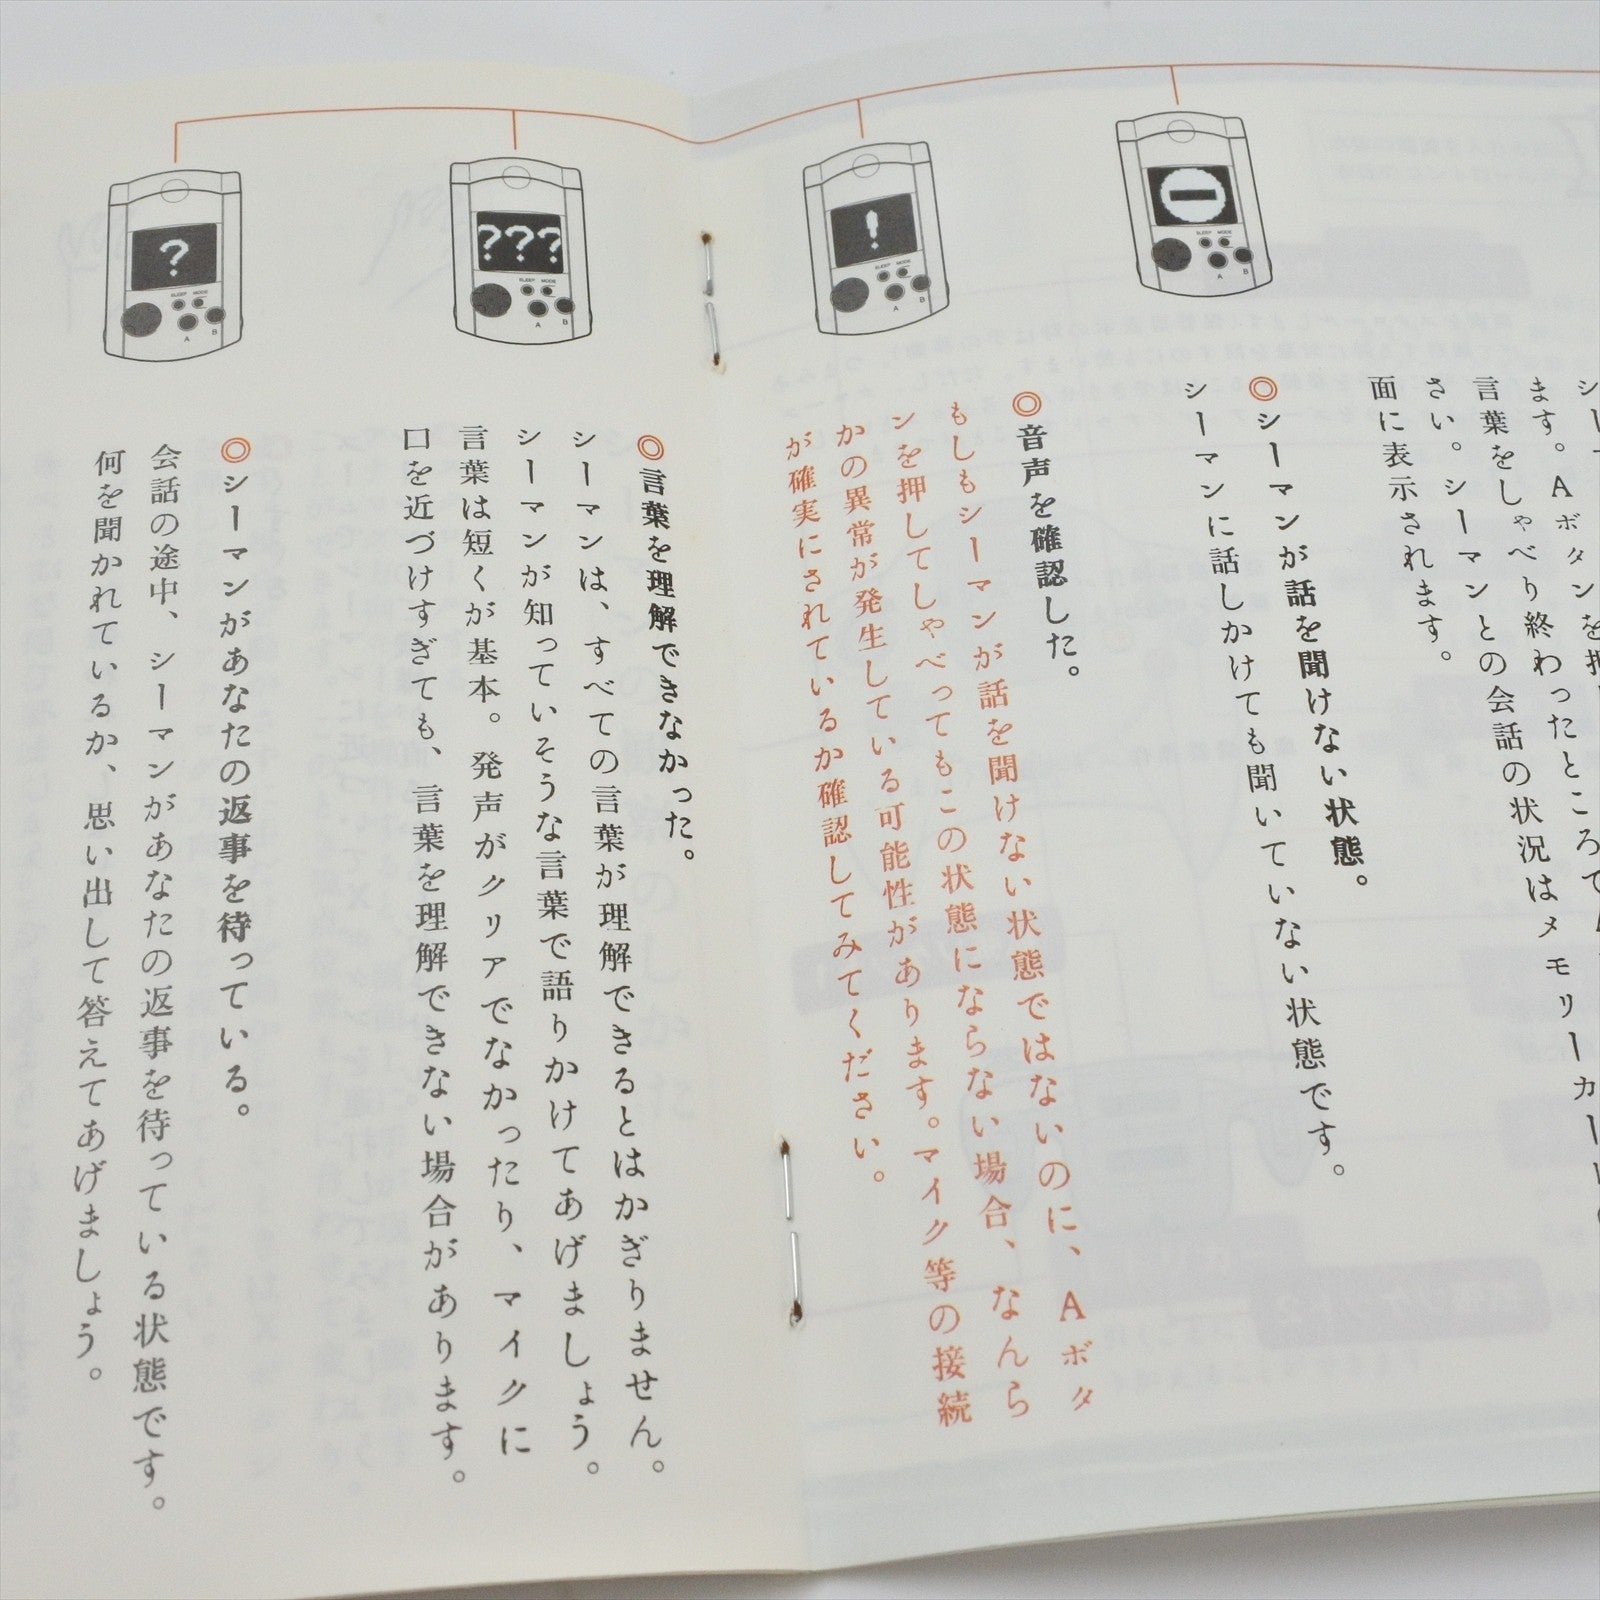 ます。Aボタンを
言葉をしゃべり終わったところで
さい。シーマンとの会話の状況はメモリーカー
面に表示されます。
◎シーマンが話を聞けない状態。
シーマンに話しかけても聞いていない状態です。
◎音声を確認した。
もしもシーマンが話を聞けない状態ではないのに、Aボタ
ンを押してしゃべってもこの状態にならない場合、なんら
かの異常が発生している可能性があります。マイク等の接続
が確実にされているか確認してみてください。
◎言葉を理解できなかった。
シーマンは、すべての言葉が理解できるとはかぎりません。
シーマンが知っていそうな言葉で語りかけてあげましょう。
言葉は短くが基本。発声がクリアでなかったり、マイクに
口を近づけすぎても、言葉を理解できない場合があります。
◎シーマンがあなたの返事を待っている。
会話の途中、シーマンがあなたの返事を待っている状態です。
何を聞かれているか、思い出して答えてあげましょう。
!
SLEEP MODE
A B
SLEEP MODE
A B
???
SLEEP MODE
A B
?
SLEEP MODE
A B